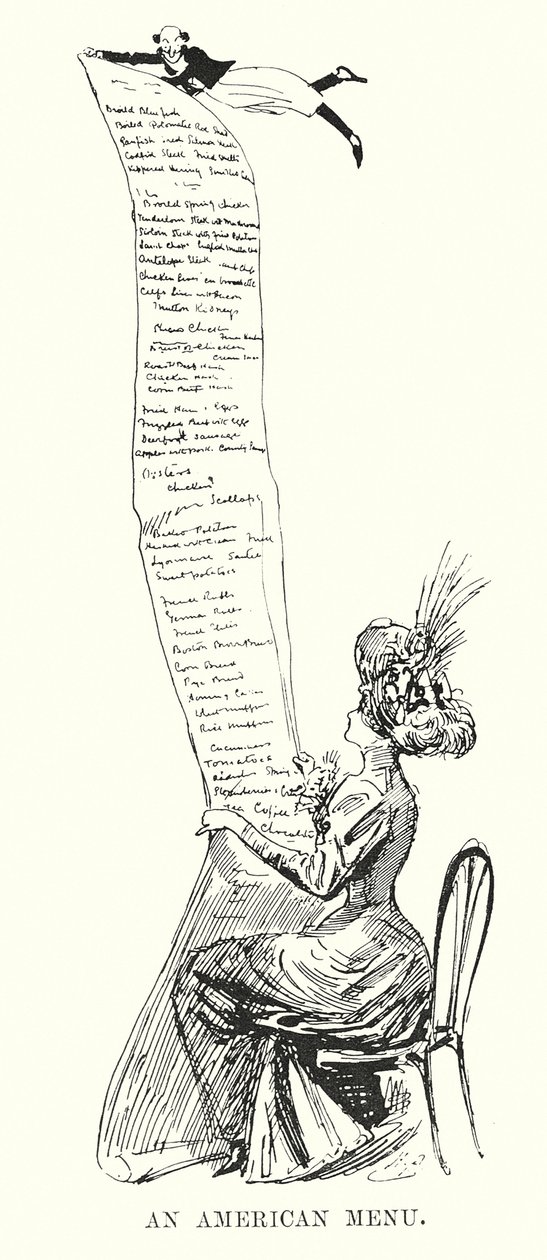 Broild Blue fish
Boiled Potomatic Roe Shad
Panfish Fried Salmon Steak
Codfish Steak Fried Smelts
Kippered Herring Smelts
Broild Spring Chicken
Tenderloin Steak wt Mushrooms
Sirloin Steak with Fried Potatoes
Lamb Chops English Mutton Chop
Antelope Steak and Chips
Chicken livers en brochette
Calfs Liver wt Bacon
Mutton Kidneys
Chicken
of Chicken
Roast Beef Hash
Chicken Hash
Corn Beef Hash
Fried Ham & Eggs
Frizzled Beef wt Eggs
Deerfoot Sausage
Apples wt Pork. Country
Oysters
Chicken
Scollops
Baked Potatoes
Hashed wt Cream Fried
Lyonnaise Sautee
Sweet potatoes
French Rolls
Vienna Rolls.
French
Boston Brown Bread
Corn Bread
Rye Bread
Hominy Cakes
Wheat muffins
Rice Muffins
Cucumbers
Tomatoes
Radishes Spring
Strawberries & Cream
Tea Coffee
Chocolate
AN AMERICAN MENU.